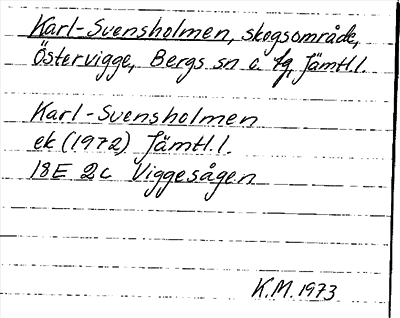 Karl-Svensholmen, skogsområde,
Östervigge, Bergs sn o. tg, Jämtl.l.
Karl-Svensholmen
ek (1972) Jämtl.l.
18E 2c Viggesågen
K.M. 1973